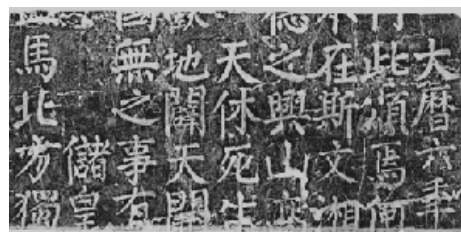 大曆六年
此頌焉何
不在斯文湘
德之興山高
天休死生
歡地闢天開
國無之事有
儲皇
馬北方獨